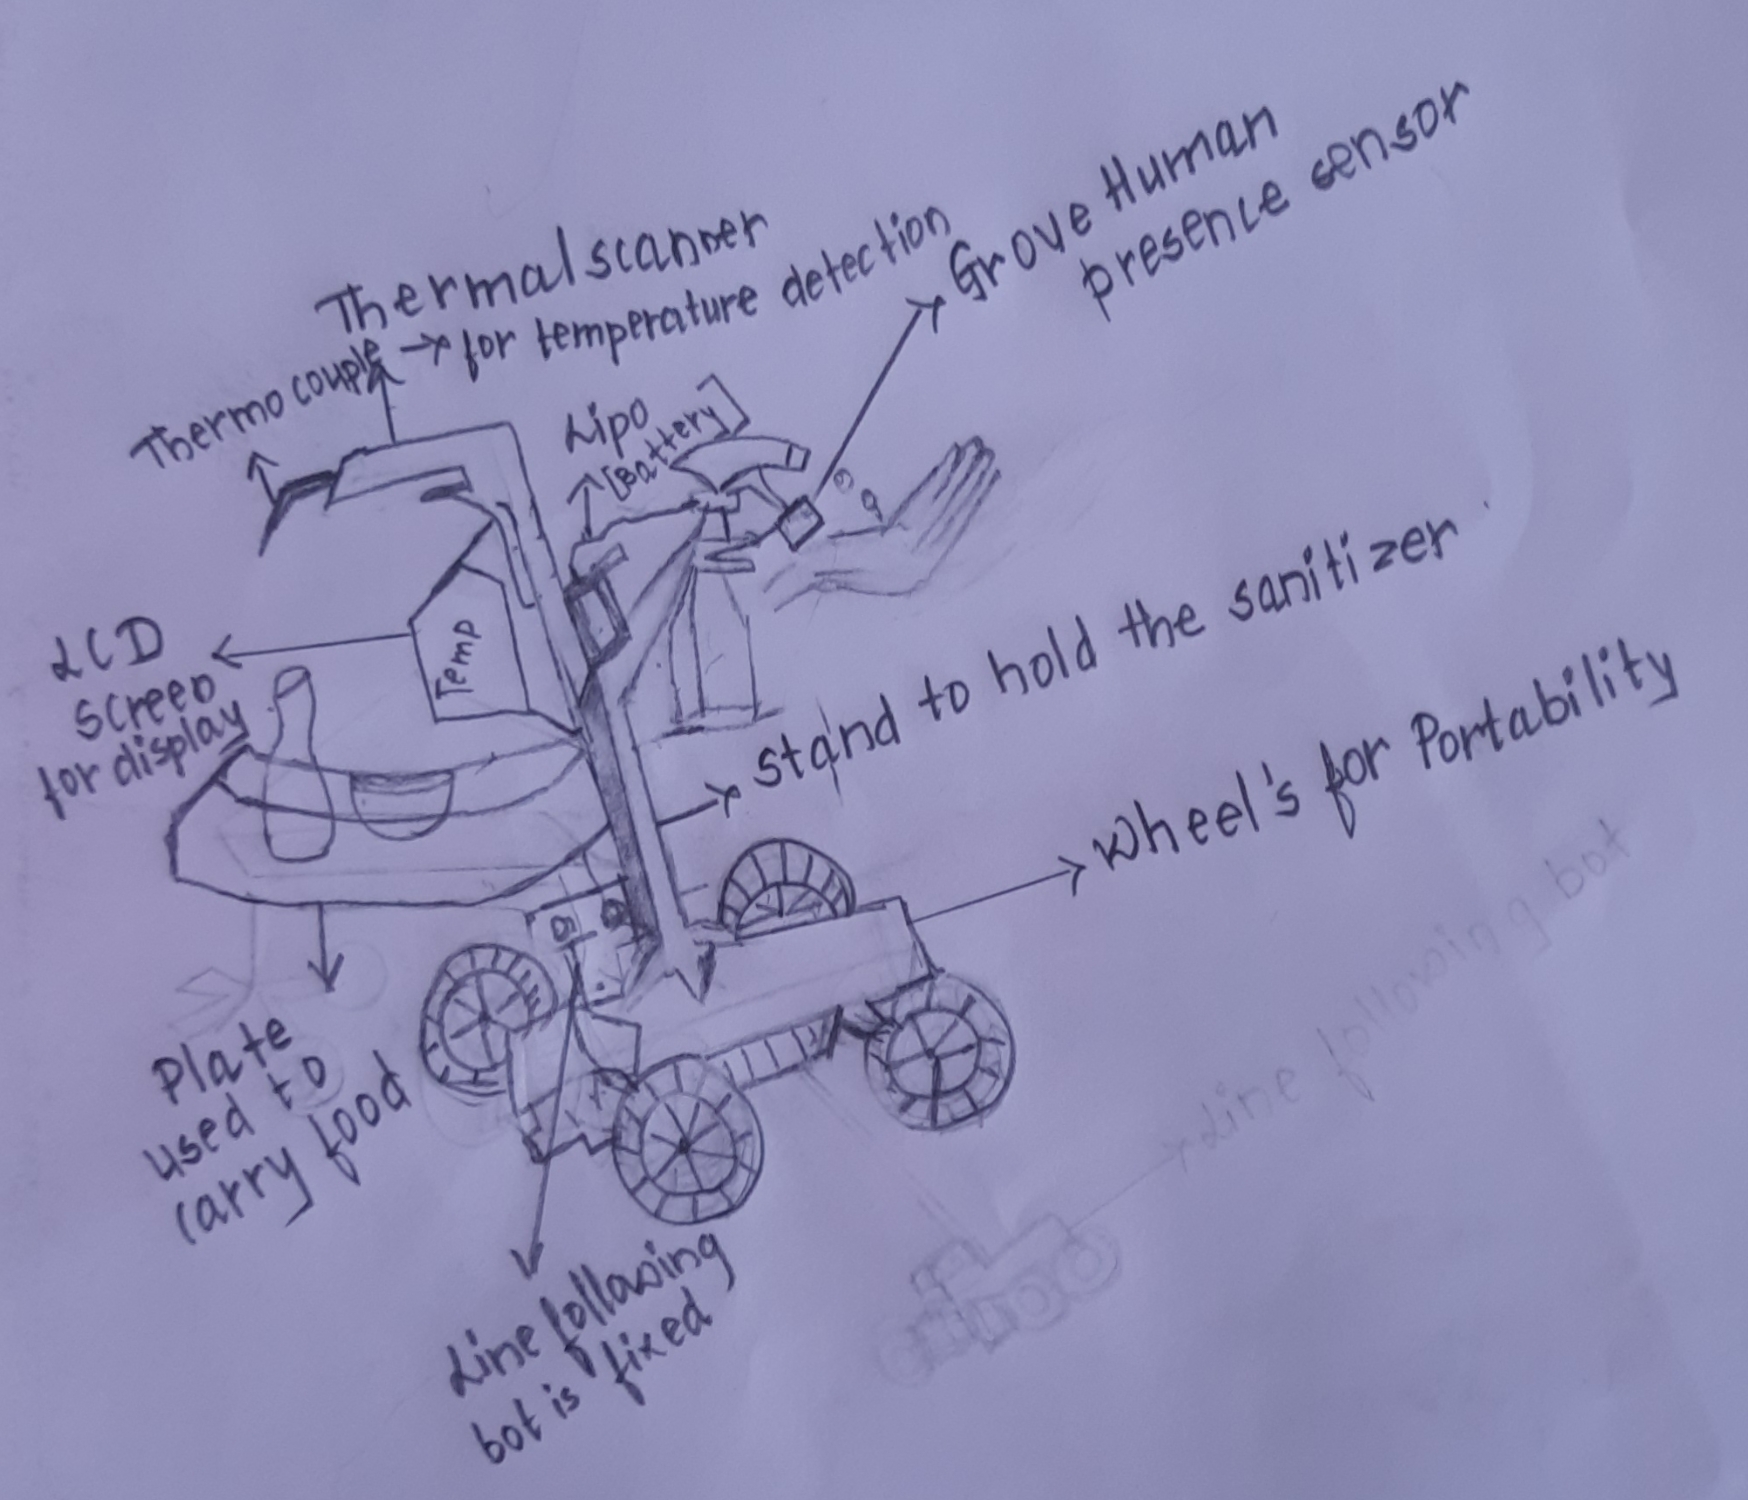 Thermal scanner
Thermocouple → for temperature detection
Grove Human
presence sensor
Lipo
[Battery]
LCD
screen
for display
Temp
stand to hold the sanitizer
Wheel's for Portability
Plate
used to
carry food
Line following
bot is fixed
Line following bot